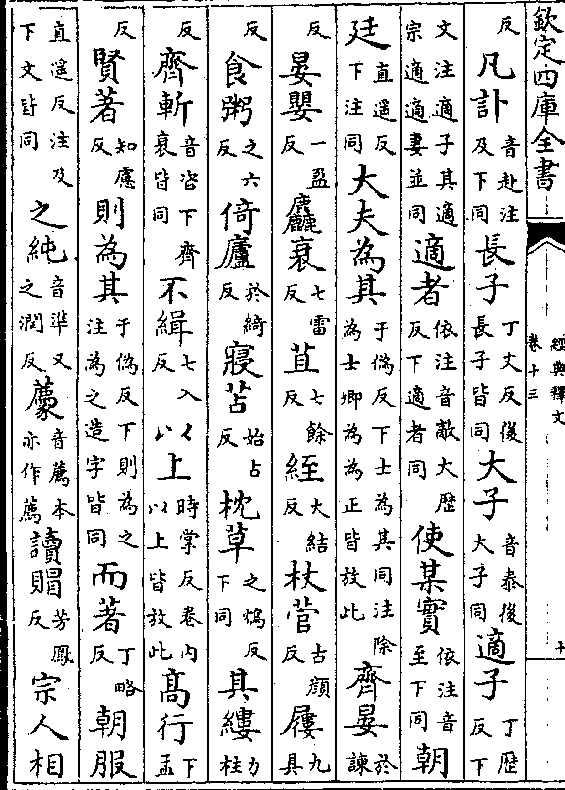 欽定四庫全書
經典釋文
卷十三
十
反凡訃音赴注及下同長子丁丈反後長子皆同大子音泰後大子同適子丁歷反下
文注適子其適宗適適妻並同適者依注音敵大歷反下適者同使某實依注音至下同朝
廷直遥反下注同大夫為其于偽反下士為其同注除為士卿為為正皆放此齊晏於諫
反晏嬰一盈反麤衰七雷反苴七餘反絰大結反杖菅古顔反屨九具
反食粥之六反倚廬於綺反寢苫始占反枕草之鴆反下同其縷力柱
反齊斬音咨下齊衰皆同不緝七入反以上時掌反卷内以上皆放此高行下孟
反賢著知慮反則為其于偽反下則為之注為之造字皆同而著丁略反朝服
直遥反注及下文皆同之純音準又之潤反藳音薦本亦作薦讀賵芳鳳反宗人相